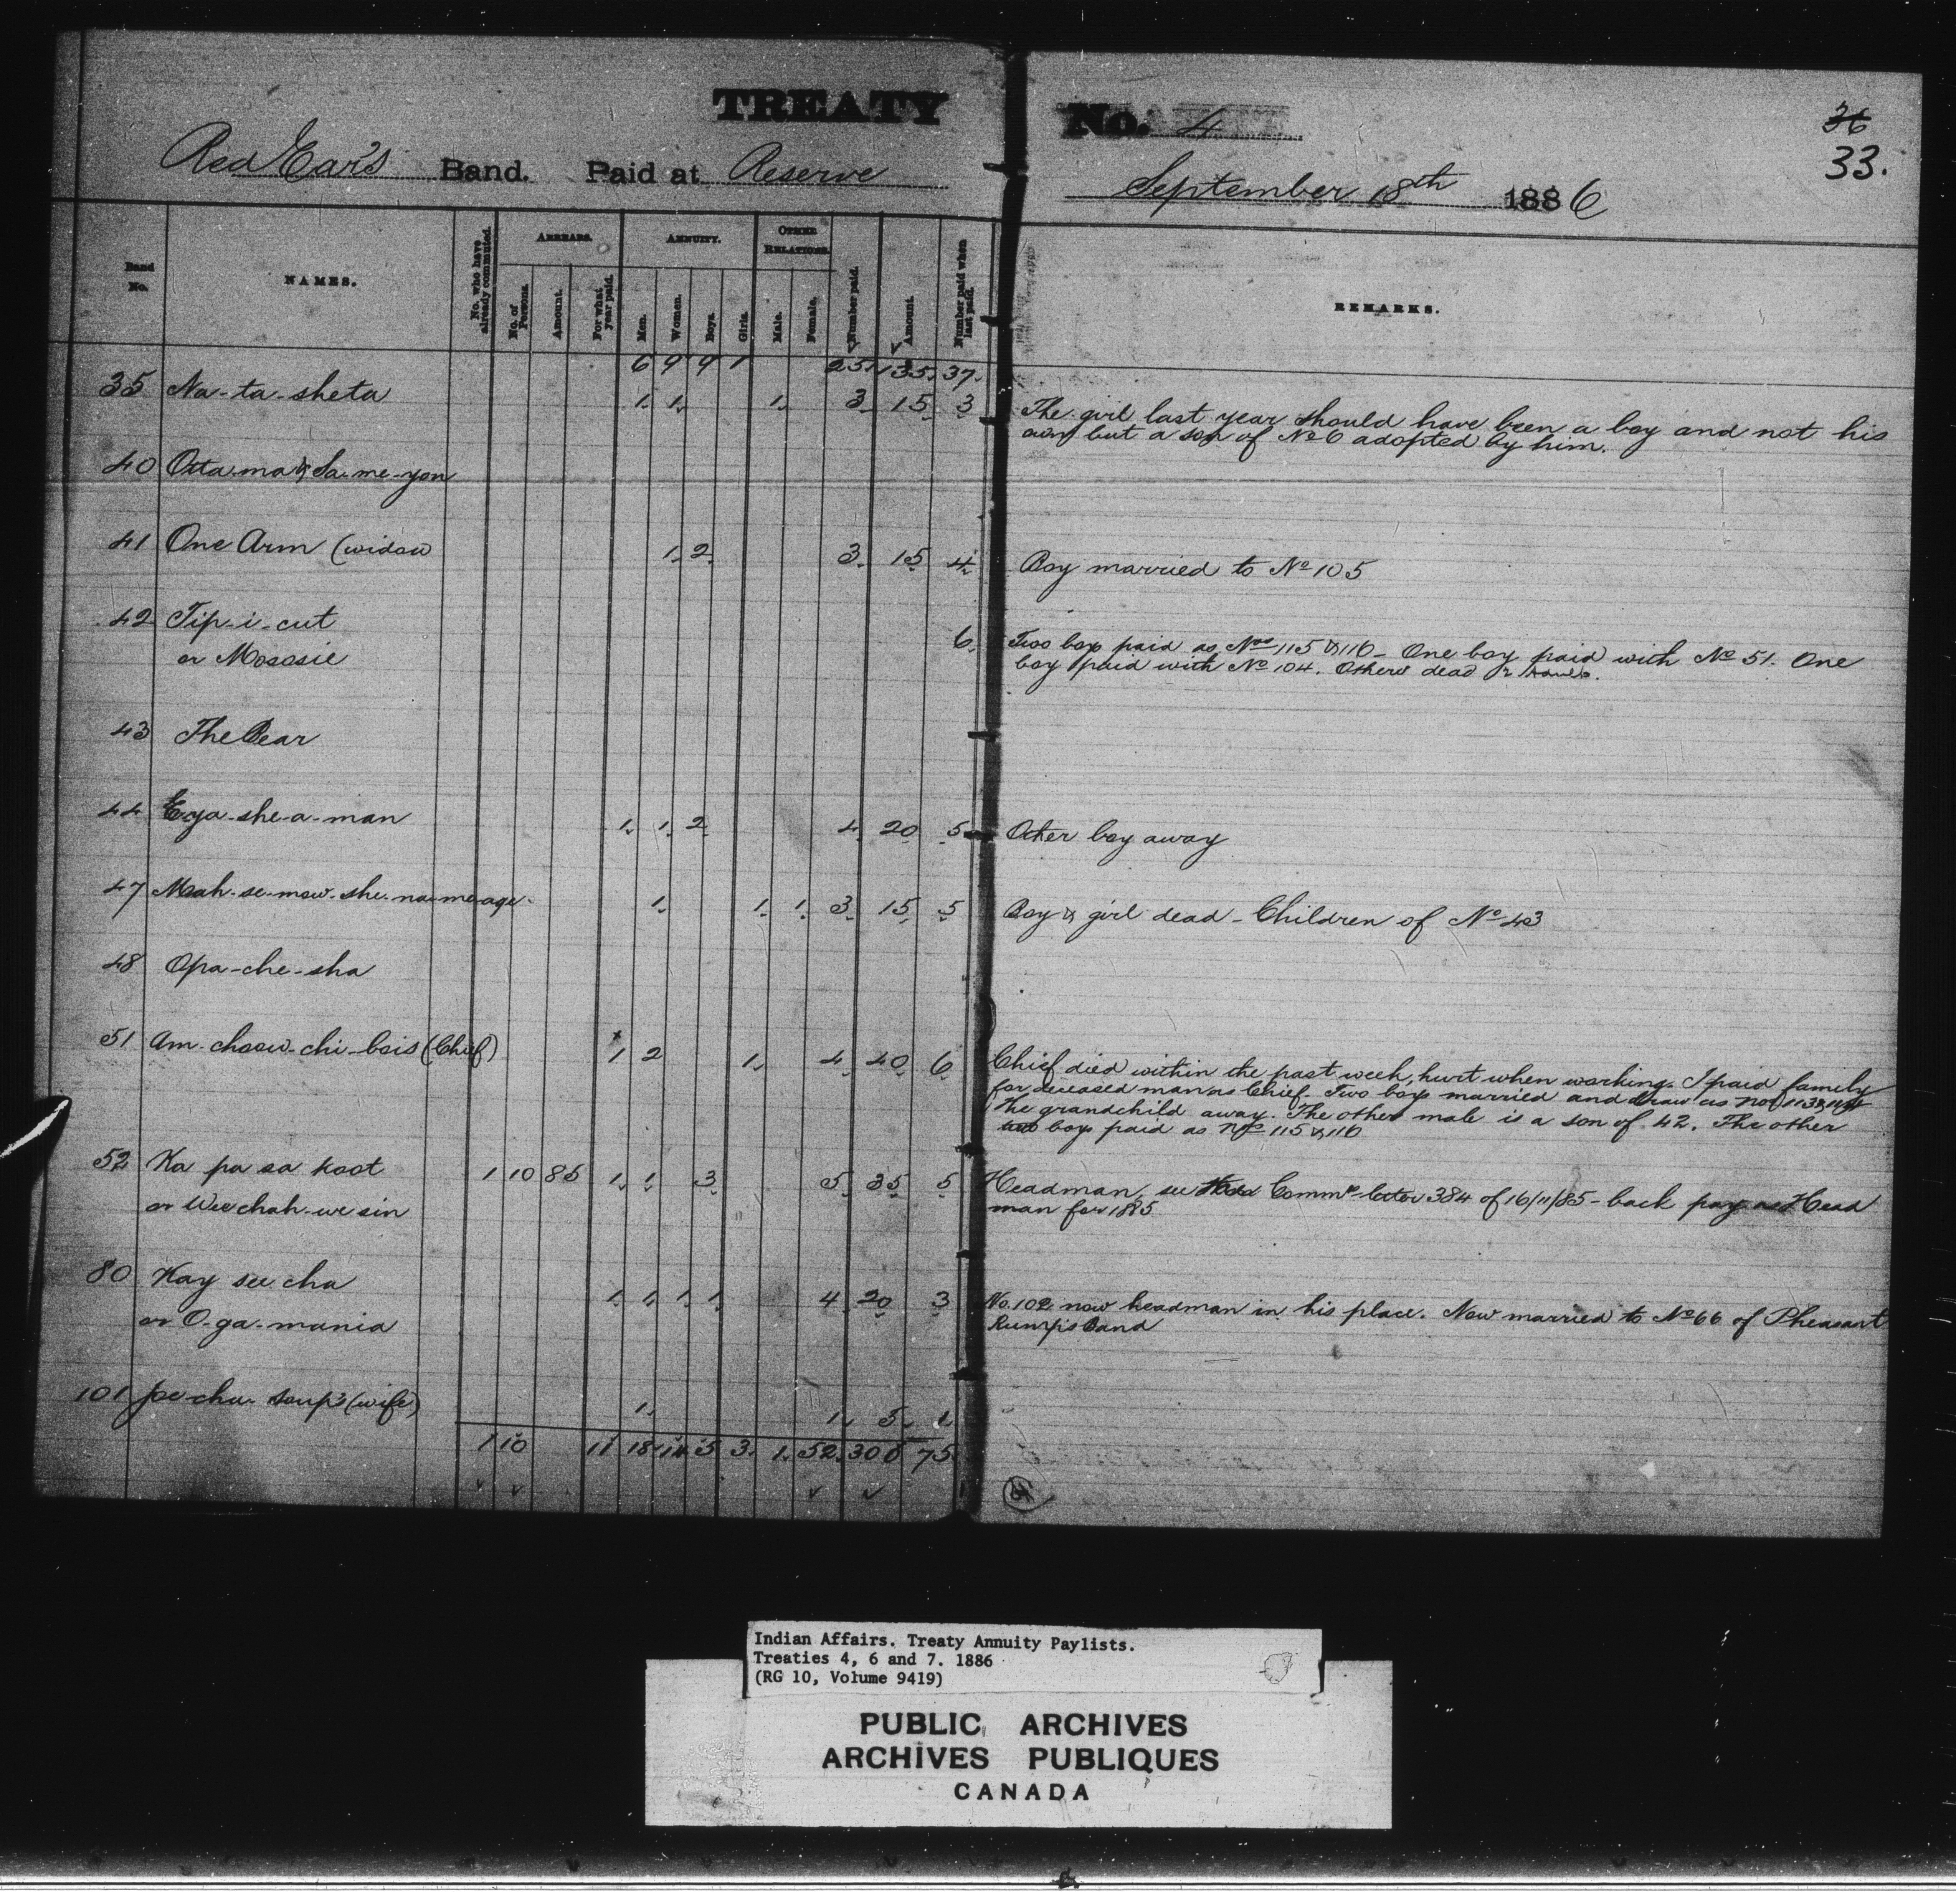 TREATY No. 4
36
33.
Red Ear's Band. Paid at Reserve September 18th 1886
Band No. NAMES. No. who have already commuted. ARREARS. No. of Persons. Amount. For what year paid. ANNUITY. Men. Women. Boys. Girls. OTHER RELATIONS. Male. Female. Number paid. Amount. Number paid when last paid. REMARKS.
6 9 9 1 25 135. 37.
35 Na-ta-sheta 1. 1. 1. 3. 15. 3 The girl last year should have been a boy and not his
own but a son of No 6 adopted by him.
40 Otta-ma & Sa-me-yon
41 One Arm (widow 1. 2. 3. 15. 4. Boy married to No 105
42 Tip-i-cut 6. Two boys paid as Nos 115 & 116 - One boy paid with No 51. One
or Mososie boy paid with No 104. Others dead
43 The Bear
44 Ega-she-a-man 1. 1. 2. 4. 20. 5. Other boy away
47 Mah-se-mow-she-na-me-age 1. 1. 1. 3. 15. 5. Boy & girl dead - Children of No 43
48 Opa-che-sha
51 Am-choow-chi-bois (Chief) 1 2 1. 4. 40. 6. Chief died within the past week, hurt when working. I paid family
for deceased man as Chief. Two boys married and draw as Nos 113 & 114
The grandchild away. The other male is a son of 42. The other
boys paid as Nos 115 & 116
52 Ka pa sa koot 1 10 85 1. 1. 3. 5. 35. 5. Headman, see Commrs letter 384 of 16/11/85 - back pay as Head
or Wee chah-we sin man for 1885
80 Kay see cha 1. 1. 1. 1. 4. 20. 3. No. 102 now headman in his place. Now married to No 66 of Pheasant
or O-ga-mania Rump's Band
101 pe-cha- soup's (wife) 1. 1. 5. 1.
1 10 11 18 14 5 3. 1. 52. 300 75.
Indian Affairs. Treaty Annuity Paylists.
Treaties 4, 6 and 7. 1886
(RG 10, Volume 9419)
PUBLIC ARCHIVES
ARCHIVES PUBLIQUES
CANADA